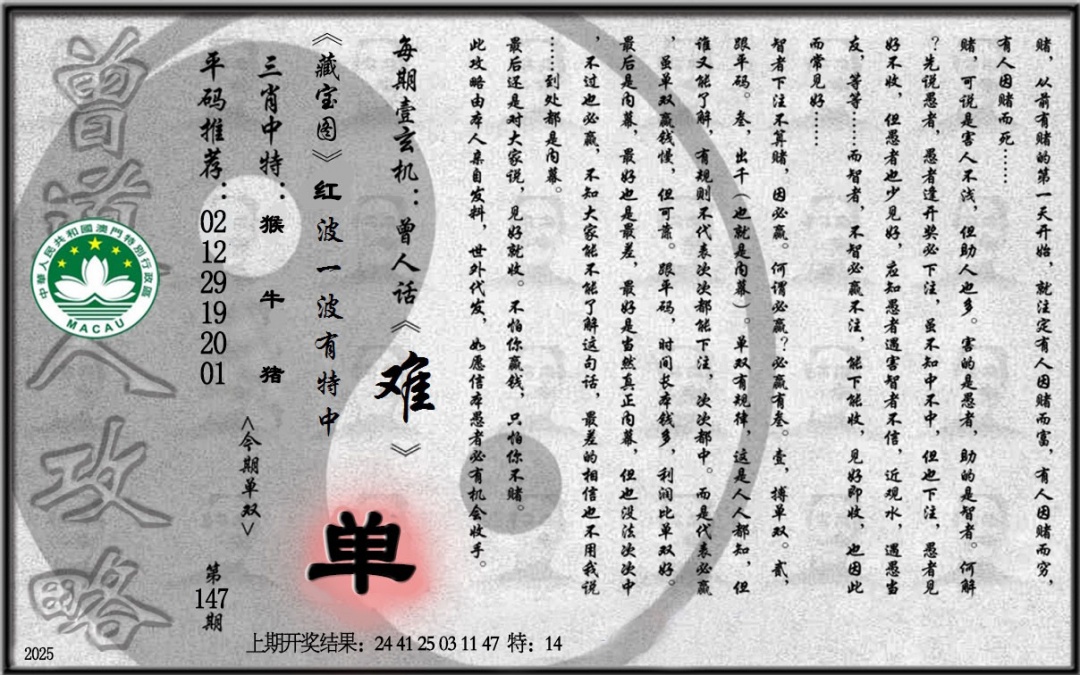 赌，从前有赌的第一天开始，就注定有人因赌而富，有人因赌而穷，
有人因赌而死……
赌，可说是害人不浅，但助人也多。害的是愚者，助的是智者。何解
？先说愚者，愚者逢开奖必下注，虽不知中不中，但也下注，愚者见
好不收，但愚者也少见好，应知愚者遇害智者不信，近观水，遇愚当
友，等等……而智者，不智必赢不注，能下能收，见好即收，也因此
而常见好……
智者下注不算赌，因必赢。何谓必赢？必赢有叁。壹，搏单双。贰，
跟平码。叁，出千（也就是内幕）。单双有规律，这是人人都知，但
谁又能了解，有规则不代表次次都能下注，次次都中。而是代表必赢
，虽单双赢钱慢，但可靠。跟平码，时间长本钱多，利润比单双好。
最后是内幕，最好也是最差，最好是当然真正内幕，但也没法次次中
，不过也必赢，不知大家能不能了解这句话，最差的相信也不用我说
……到处都是内幕。
最后还是对大家说，见好就收。不怕你赢钱，只怕你不赌。
此攻略由本人亲自发料，世外代发，如愿信本愚者必有机会收手。
每期壹玄机：曾人话《难》
《藏宝图》红波一波有特中
三肖中特：猴 牛 猪
平码推荐：02 12 29 19 20 01
<今期单双>
单
第147期
曾道人攻略
中華人民共和國澳門特別行政區
MACAU
上期开奖结果：24 41 25 03 11 47 特：14
2025